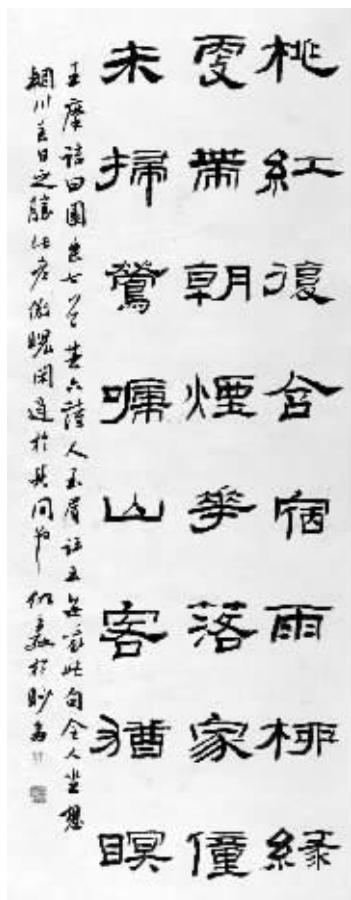 桃紅復含宿雨柳綠
更帶朝煙華落家僮
未掃鶯嗁山客猶瞑
王摩詰田園樂七首其六詩人玉屑云每哦此句令人坐想
輞川春日之勝此老傲睨閑適於其間也